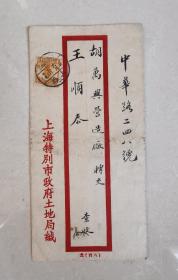 中華路二四八號
胡萬興營造廠轉交
王順泰
上海特別市政府土地局緘